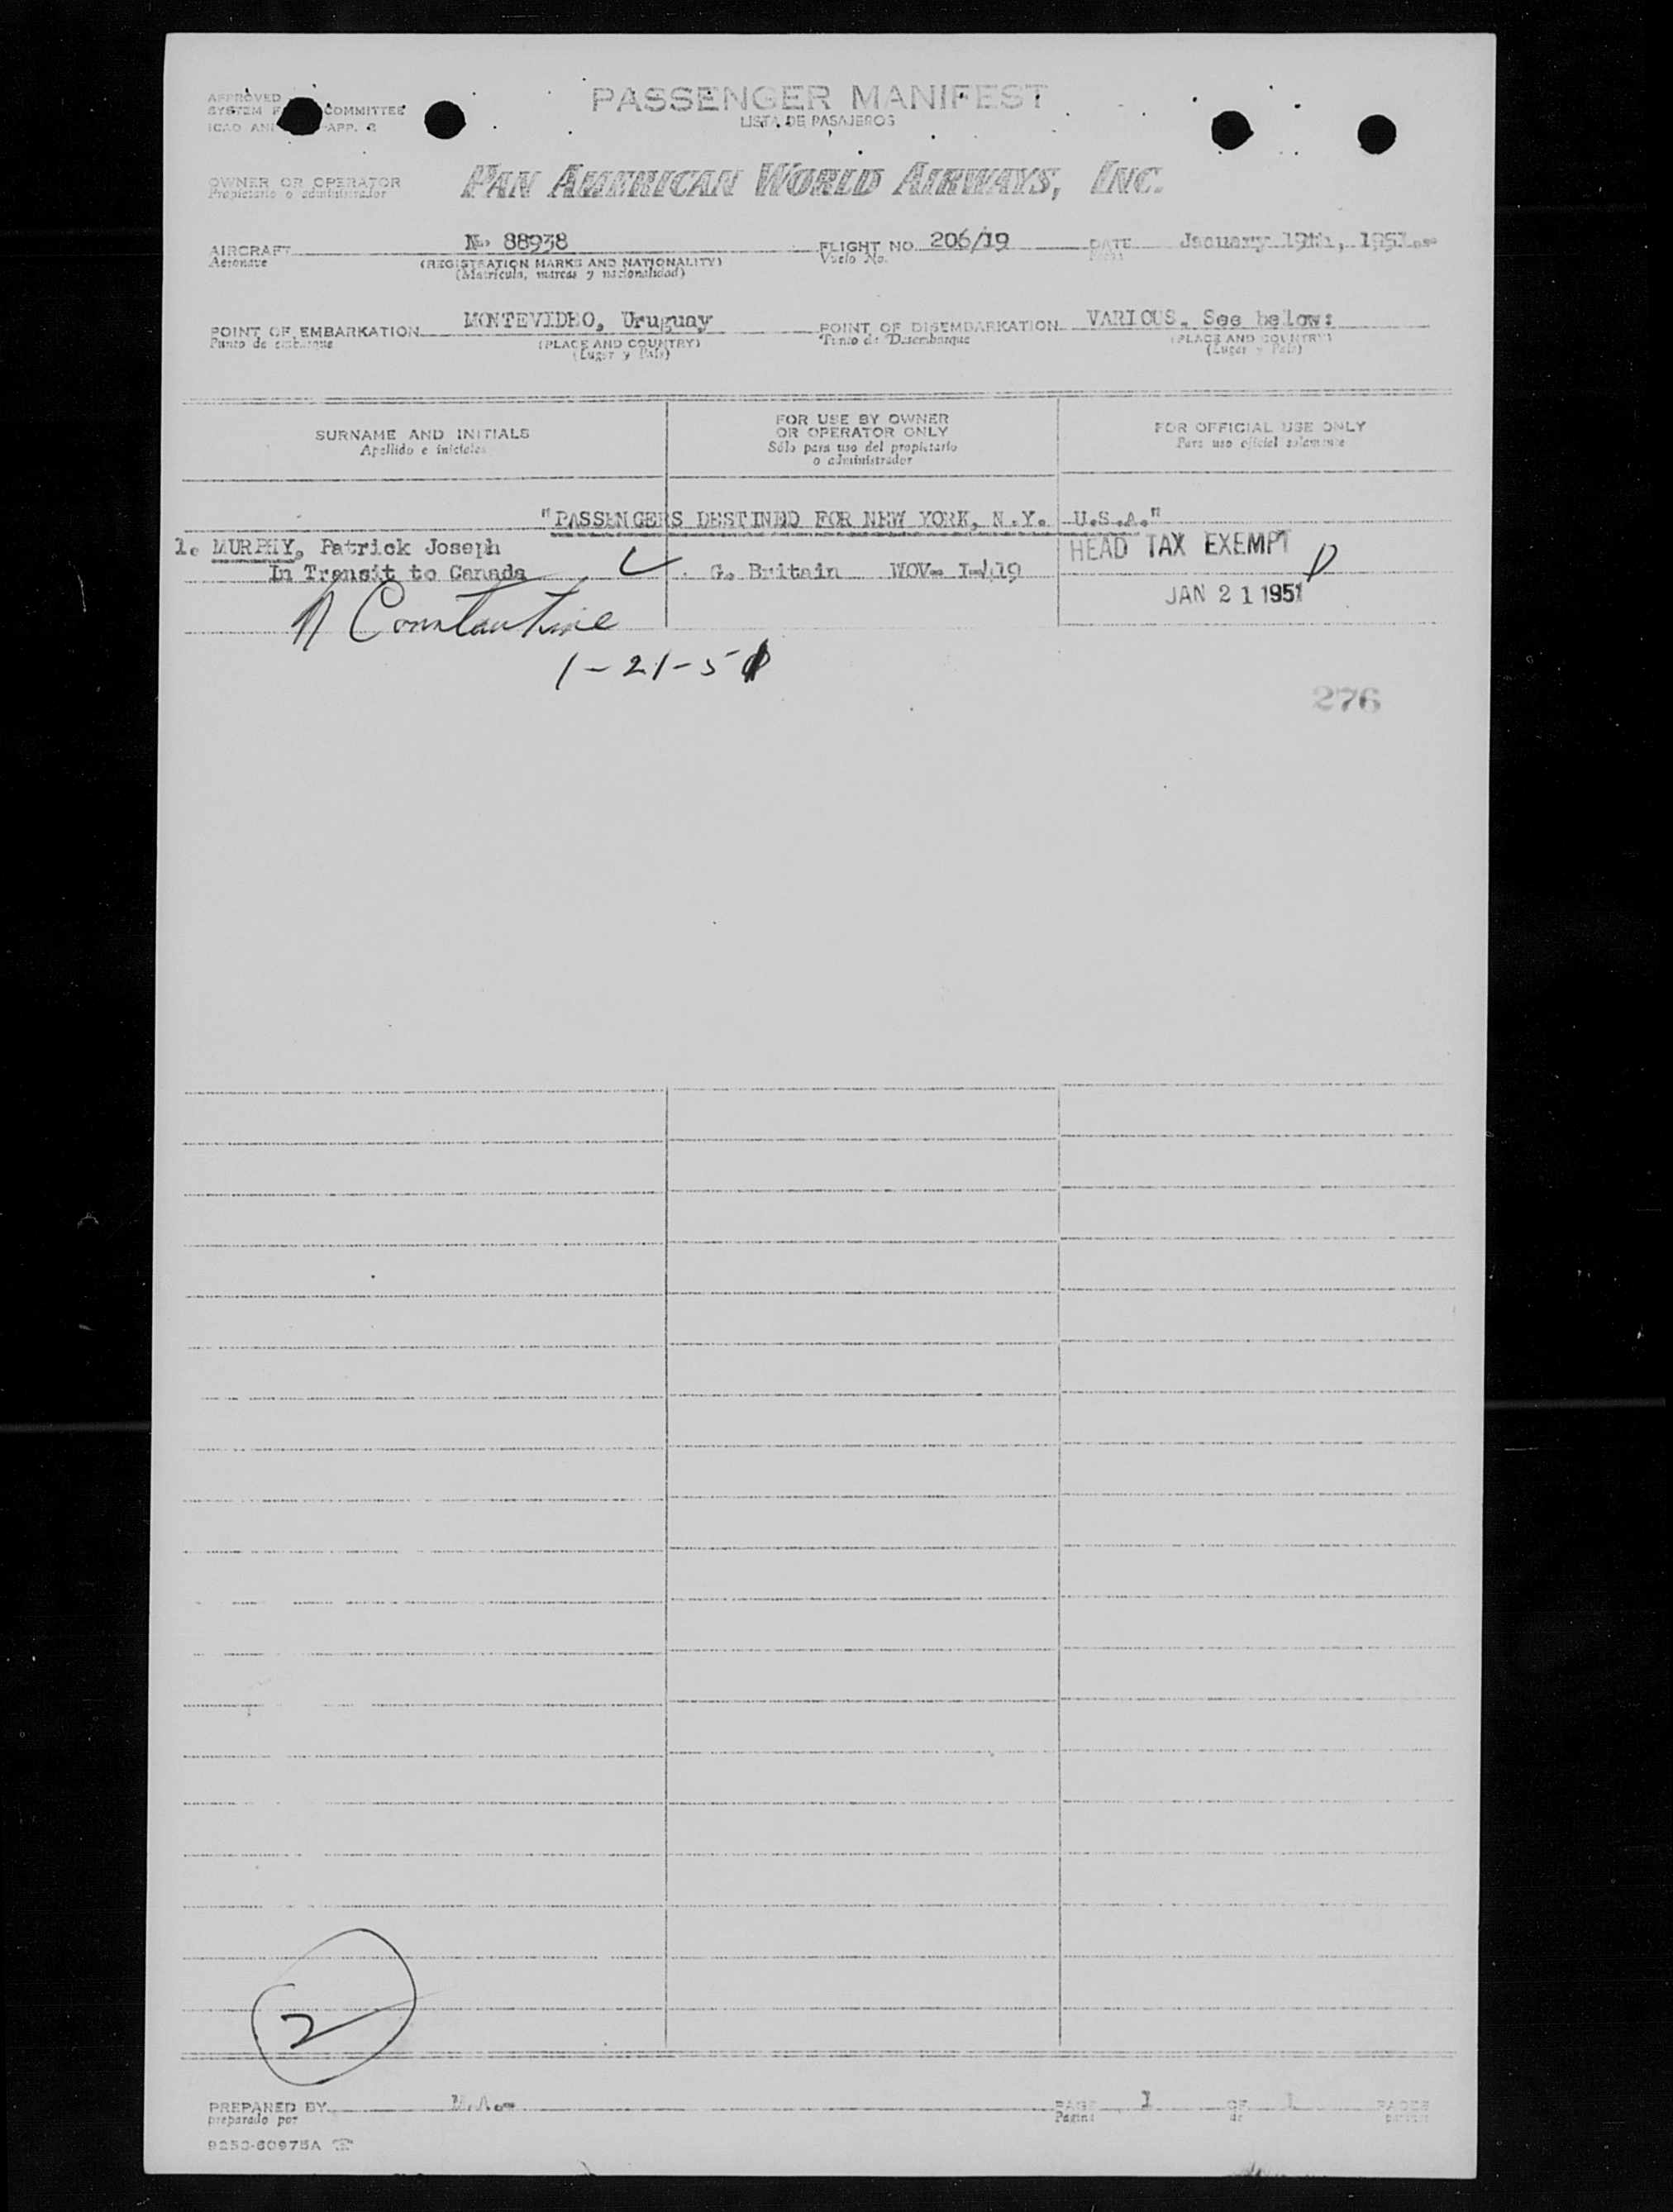 PASSENGER MANIFEST
LISTA DE PASAJEROS
APPROVED
SYSTEM COMMITTEE
ICAO APP. 2
OWNER OR OPERATOR
Propietario o administrador
PAN AMERICAN WORLD AIRWAYS, INC.
AIRCRAFT No. 88938 FLIGHT NO. 206/19 DATE January 19th, 1951.-
Aeronave (REGISTRATION MARKS AND NATIONALITY) Vuelo No. Fecha
(Matrícula, marcas y nacionalidad)
POINT OF EMBARKATION MONTEVIDEO, Uruguay POINT OF DISEMBARKATION VARIOUS. See below:
Punto de embarque (PLACE AND COUNTRY) Punto de Desembarque (PLACE AND COUNTRY)
(Lugar y País) (Lugar y País)
SURNAME AND INITIALS
Apellido e iniciales
FOR USE BY OWNER
OR OPERATOR ONLY
Sólo para uso del propietario
o administrador
FOR OFFICIAL USE ONLY
Para uso oficial solamente
"PASSENGERS DESTINED FOR NEW YORK, N.Y. U.S.A."
1. MURPHY, Patrick Joseph HEAD TAX EXEMPT
In Transit to Canada G. Britain
JAN 21 1951
Constantine
1-21-51
276
2
PREPARED BY M.A.-
preparado por
PAGE 1 OF 1 PAGES
Página de
9253-60975A